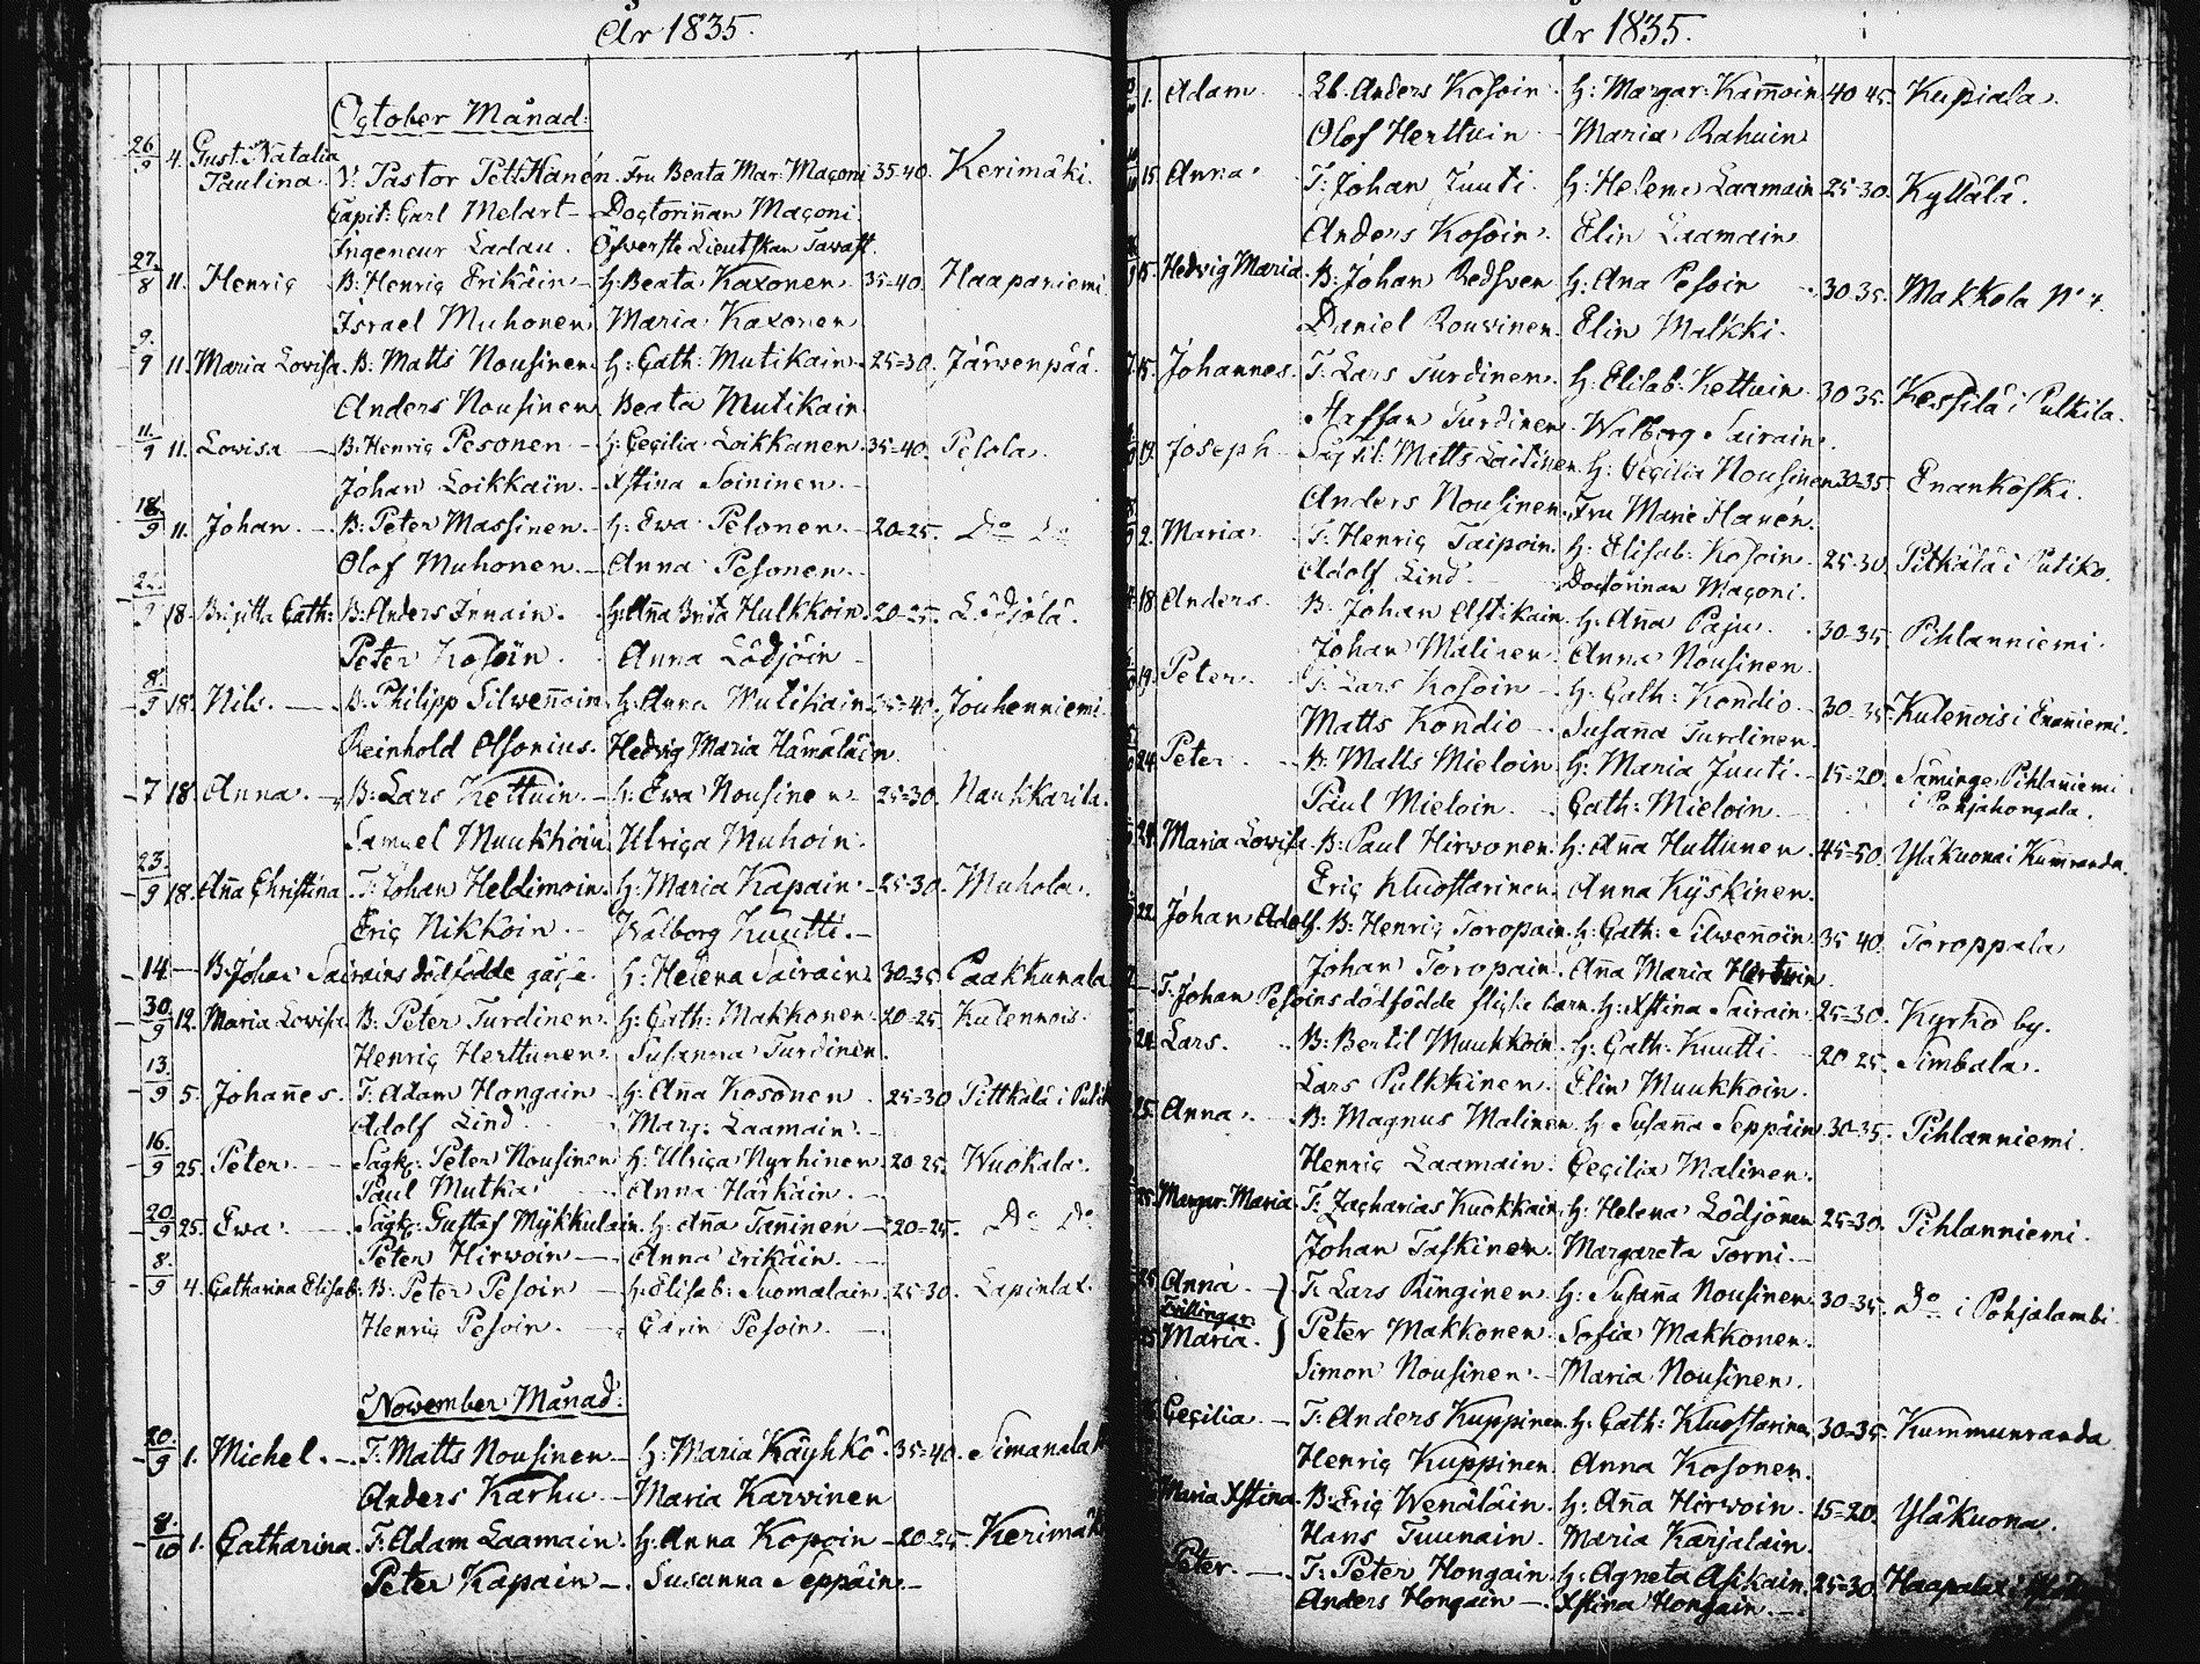 År 1835.
October Månad:
26/9 4. Gust. Natalia
Paulina. V: Pastor Pett Hanén. Fru Beata Mar: Maçoni 35-40. Kerimäki.
Capit: Carl Melart - Doctorinnan Maçoni.
Ingeneur Ladau. Öfverste Lieutskan Tavast.
27/8 11. Henric B: Henric Erikäin - h: Beata Kaxonen. 35=40. Haapaniemi.
Israel Muhonen. Maria Kaxonen
9/9 11. Maria Lovisa. B: Matts Nousinen. h: Cath: Mutikain. 25=30. Järvenpää.
Anders Nousinen Beata Mutikain.
11/9 11. Lovisa - B: Henric Pesonen - h: Cecilia Loikkanen. 35=40. Pesola.
Johan Loikkain. - Xstina Soininen. -
18/9 11. Johan. - B: Peter Massinen. - h: Ewa Pesonen. - 20=25. Do Do
Olof Muhonen. - Anna Pesonen.
9 18. Brigitta Cath: B: Anders Innain. - h: Aña Brita Hulkkoin. 20-25. Lödjölä.
Peter Kosoin. Anna Lödjöin -
8/9 18. Nils. - B: Philipp Silwenñoin. h: Anna Mutikain 35=40. Jouhenniemi.
Reinhold Alfonius. Hedvig Maria Hämäläin.
7 18. Anna. - B: Lars Kettuin. - h: Ewa Nousinen - 25=30. Naukkarila.
Samuel Muukkoin. Ulrica Muhoin.
23/9 18. Aña Christina T: Johan Heldimoin. h: Maria Kapain. - 25=30. Muhola.
Eric Nikkoin. - Wålborg Kuutti. -
14. - B: Johan Sairains dödfödde gåsse. h: Helena Sairain 30=35. Paakkunala
30/9 12. Maria Lovisa. B: Peter Turdinen. h: Cath: Makkonen. 20=25. Kulennois.
Henric Herttunen. Susanna Turdinen.
13/9 5. Johañes. T: Adam Hongain - h: Aña Kosonen. 25=30 Pittkälä i
Adolf Lind. Marg: Laamain. -
16/9 25. Peter. - Sågk: Peter Nousinen h: Ulrica Nyrhinen. 20-25. Wuokala.
Paul Mutka - Anna Härkäin. -
20/9 25. Ewa. - Sågk: Gustaf Mykkulain. h: Aña Tañinen - 20=25. Do Do
Peter Hirwoin - Anna Erikäin. -
8/9 4. Catharina Elisab: B: Peter Pesoin - h: Elisab: Suomalain. 25-30. Lapinlax.
Henric Pesoin. - Carin Pesoin. -
November Månad:
20/9 1. Michel. - T: Matts Nousinen - h: Maria Käyhkö. 35=40. Simanala
Anders Karhu. - Maria Karvinen
4/10 1. Catharina. T: Adam Laamain. h: Anna Kopoin - 20-25. Kerimäki
Peter Kapain -. Susanna Seppäin. -
År 1835.
1. Adam. Lb. Anders Kosoin. h: Margar: Kamñoin 40 45. Kupiala.
Olof Herttuin - Maria Rahuin
15. Anna. T: Johan Juuti. h: Helena Laamain 25-30. Kyllälä.
Anders Kosoin. Elin Laamain
15. Hedvig Maria. B: Johan Redsven h: Ana Pesoin - 30 35. Makkola No 4.
Daniel Rouvinen. Elin Malkki.
15. Johannes. T: Lars Turdinen. h: Elisab: Kettuin. 30 35. Kessilä i Pulkila.
Staffan Turdinen. Walborg Sairain.
19. Joseph Matts Laitinen. h: Cecilia Nousinen 30=35. Enankoski.
Anders Nousinen. Fru Marie Hanén.
2. Maria. T: Henric Taipoin. h: Elisab: Kosoin. 25-30. Pitkälä i Putiko.
Adolf Lind. - Doctorinnan Maçoni.
18. Anders. B: Johan Astikain h: Aña Paju. 30-35. Pihlanniemi.
Johan Malinen. Anna Nousinen.
19. Peter. T: Lars Kosoin - h: Cath: Kondio - 30-35. Kuleñois i Enañiemi.
Matts Kondio -. Susaña Turdinen.
24. Peter. - B: Matts Mieloin h: Maria Juuti. - 15=20. Säminge Pihlañiemi
i Pohjakongala.
Paul Mieloin. - Cath: Mieloin. -
24. Maria Lovisa. B: Paul Hirvonen. h: Aña Huttunen. 45=50. Yläkuona i Kumranda.
Eric Kluostarinen. Anna Kyskinen.
22. Johan Adolf. B: Henric Toropain. h: Cath: Silweñoin. 35 40. Toroppala
Johan Toropain. Aña Maria Herttuin.
- T: Johan Pesoins dödfödde flicke barn. h: Xstina Sairain. 25=30. Kyrko by.
24. Lars. - B: Bertil Muukkoin. h: Cath: Kuutti. - 20 25. Simbala.
Lars Pulkkinen. Elin Muukkoin.
25. Anna. - B: Magnus Malinen. h: Susaña Seppäin 30-35. Pihlanniemi.
Henric Laamain. Cecilia Malinen.
25. Margar: Maria. T: Zacharias Kuokkain. h: Helena Lödjönen 25=30. Pihlanniemi.
Johan Taskinen. Margareta Torni. -
25. Anna. - T: Lars Ringinen h: Susaña Nousinen. 30=35. Do i Pohjalambi.
Tvillingar
25 Maria. Peter Makkonen. Sofia Makkonen.
Simon Nousinen. - Maria Nousinen.
Cecilia. - T: Anders Kuppinen. h: Cath: Kluostarinen 30=35. Kummunranda
Henric Kuppinen. Anna Kosonen.
Maria Xstina. B: Eric Wenäläin. h: Aña Hirwoin. 15=20. Yläkuona.
Hans Tuunain. Maria Karjalain.
Peter. - T: Peter Hongain. h: Agneta Asikain. 25=30. Haapalax i
Anders Hongain -. Xstina Hongain. -